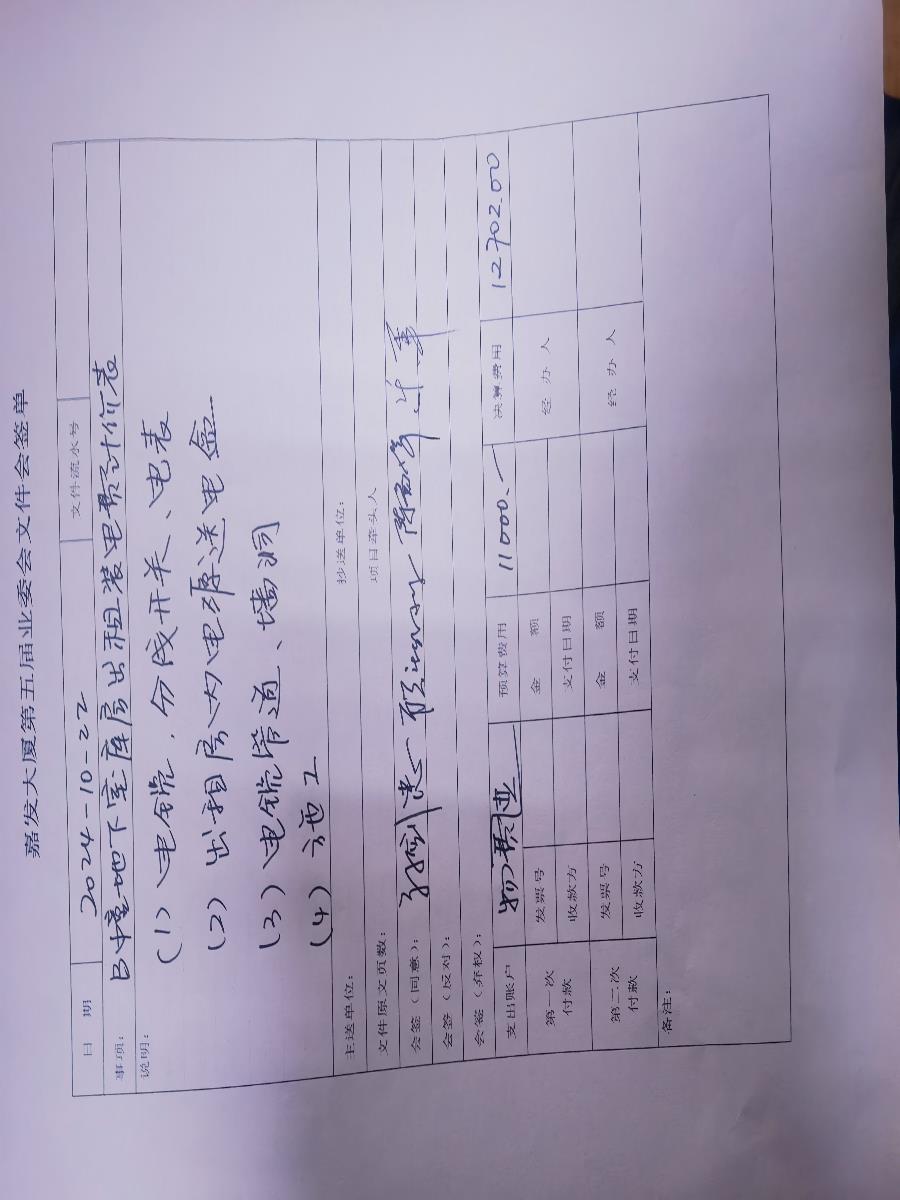 嘉发大厦第五届业委会文件会签单
日 期 2024-10-22 文件流水号
事项: B幢地下室库房出租装电费计价表
说明:
(1) 电缆、分线开关、电表
(2) 出租房内电源送电盒
(3) 电缆管道、墙洞
(4) 施工
主送单位: 抄送单位:
文件原文页数: 项目牵头人
会签(同意):
会签(反对):
会签(弃权):
支出账户 预算费用 11000.- 决算费用 12702.00
第一次付款 发票号 金 额 经 办 人
收款方 支付日期
第二次付款 发票号 金 额 经 办 人
收款方 支付日期
备注: